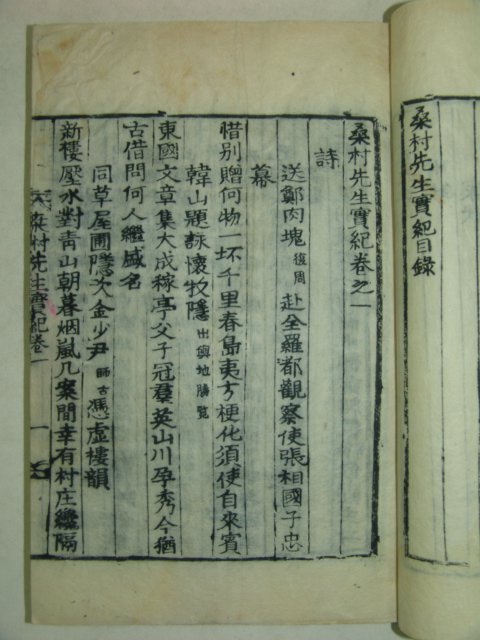 桑村先生實紀目錄
桑村先生實紀卷之一
詩
送鄭肉塊 復周 赴全羅都觀察使張相國子忠
幕
惜别贈何物一坏千里春島夷方梗化須使自來賓
韓山題詠懷牧隱 出輿地勝覧
東國文章集大成稼亭父子冠羣英山川孕秀今猶
古借問何人繼盛名
同草屋圃隱次金少尹 師古 憑虛樓韻
新樓壓水對靑山朝暮烟嵐几案間幸有村庄纔隔
桑村先生實紀卷一 一